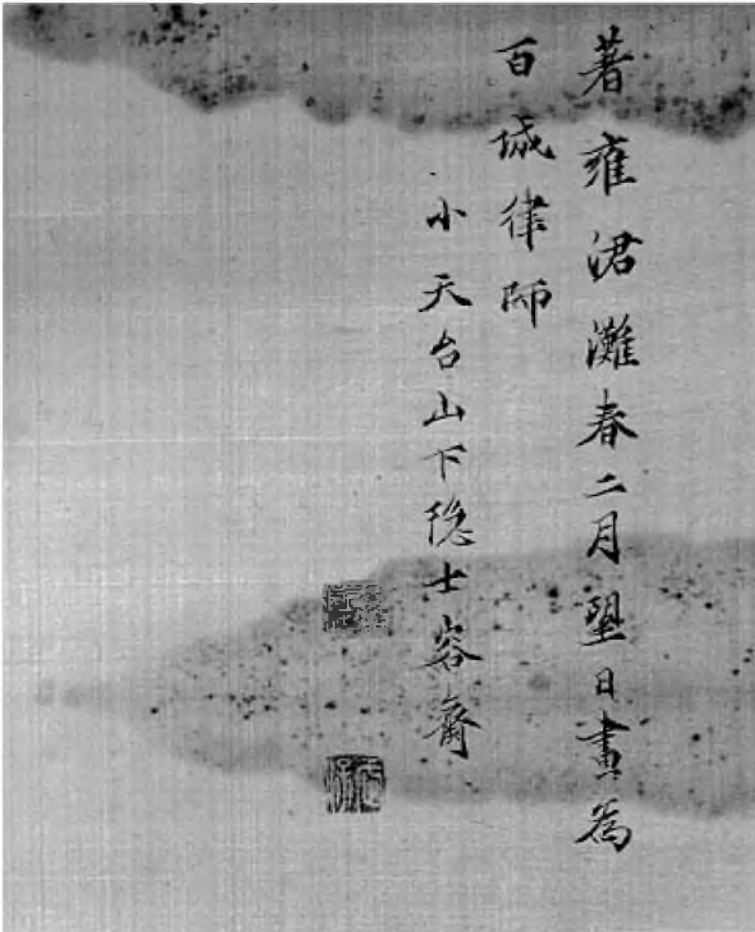 著雍涒灘春二月望日畫為
百城律師
小天台山下隐士容齋